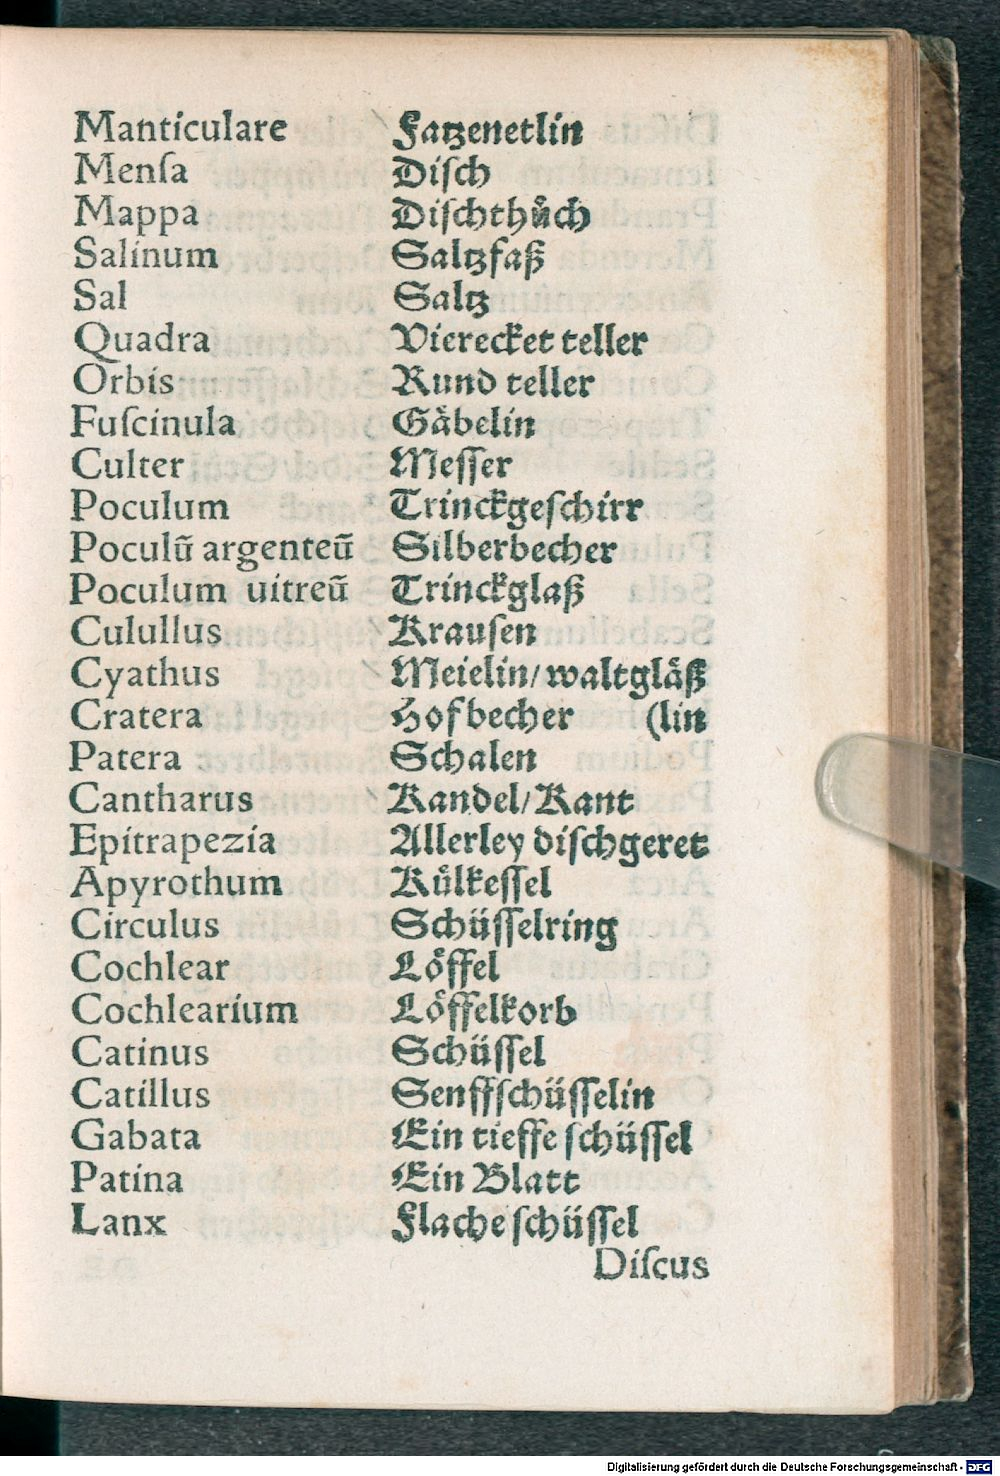 Manticulare Fatzenetlin
Menſa Diſch
Mappa Diſchthuͦch
Salinum Saltzfaß
Sal Saltz
Quadra Vierecket teller
Orbis Rund teller
Fuſcinula Gaͤbelin
Culter Meſſer
Poculum Trinckgeſchirr
Poculū argenteū Silberbecher
Poculum uitreū Trinckglaß
Culullus Krauſen
Cyathus Meielin/waltglaͤß
Cratera Hofbecher (lin
Patera Schalen
Cantharus Kandel/Kant
Epitrapezia Allerley diſchgeret
Apyrothum Kuͤlkeſſel
Circulus Schüſſelring
Cochlear Loͤffel
Cochlearium Loͤffelkorb
Catinus Schüſſel
Catillus Senffſchüſſelin
Gabata Ein tieffe ſchüſſel
Patina Ein Blatt
Lanx Flache ſchüſſel
Diſcus
Digitalisierung gefördert durch die Deutsche Forschungsgemeinschaft - DFG